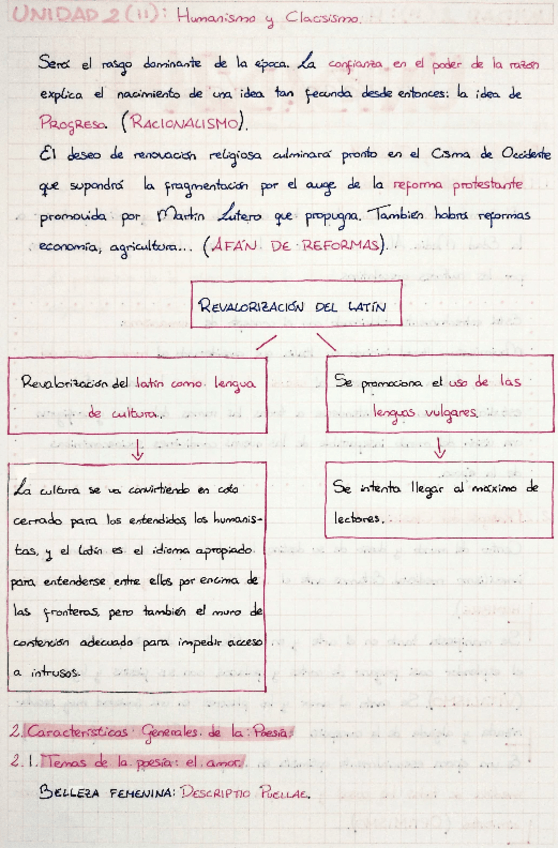 UNIDAD 2 (II): Humanismo y Clacisismo.
Será el rasgo dominante de la época. La confianza en el poder de la razón
explica el nacimiento de una idea tan fecunda desde entonces: la idea de
PROGRESO. (RACIONALISMO).
El deseo de renovación religiosa culminará pronto en el Cisma de Occidente
que supondrá la fragmentación por el auge de la reforma protestante
promovida por Martín Lutero que propugna. También habrá reformas
economía, agricultura... (AFÁN DE REFORMAS).
REVALORIZACIÓN DEL LATÍN
Revalorización del latín como lengua
de cultura.
La cultura se va convirtiendo en coto
cerrado para los entendidos, los humanis-
tas, y el latín es el idioma apropiado
para entenderse entre ellos por encima de
las fronteras, pero también el muro de
contención adecuado para impedir acceso
a intrusos.
Se promociona el uso de las
lenguas vulgares.
Se intenta llegar al máximo de
lectores.
2. Características Generales de la Poesía
2.1. Temas de la poesía: el amor
BELLEZA FEMENINA: DESCRIPTIO PUELLAE.